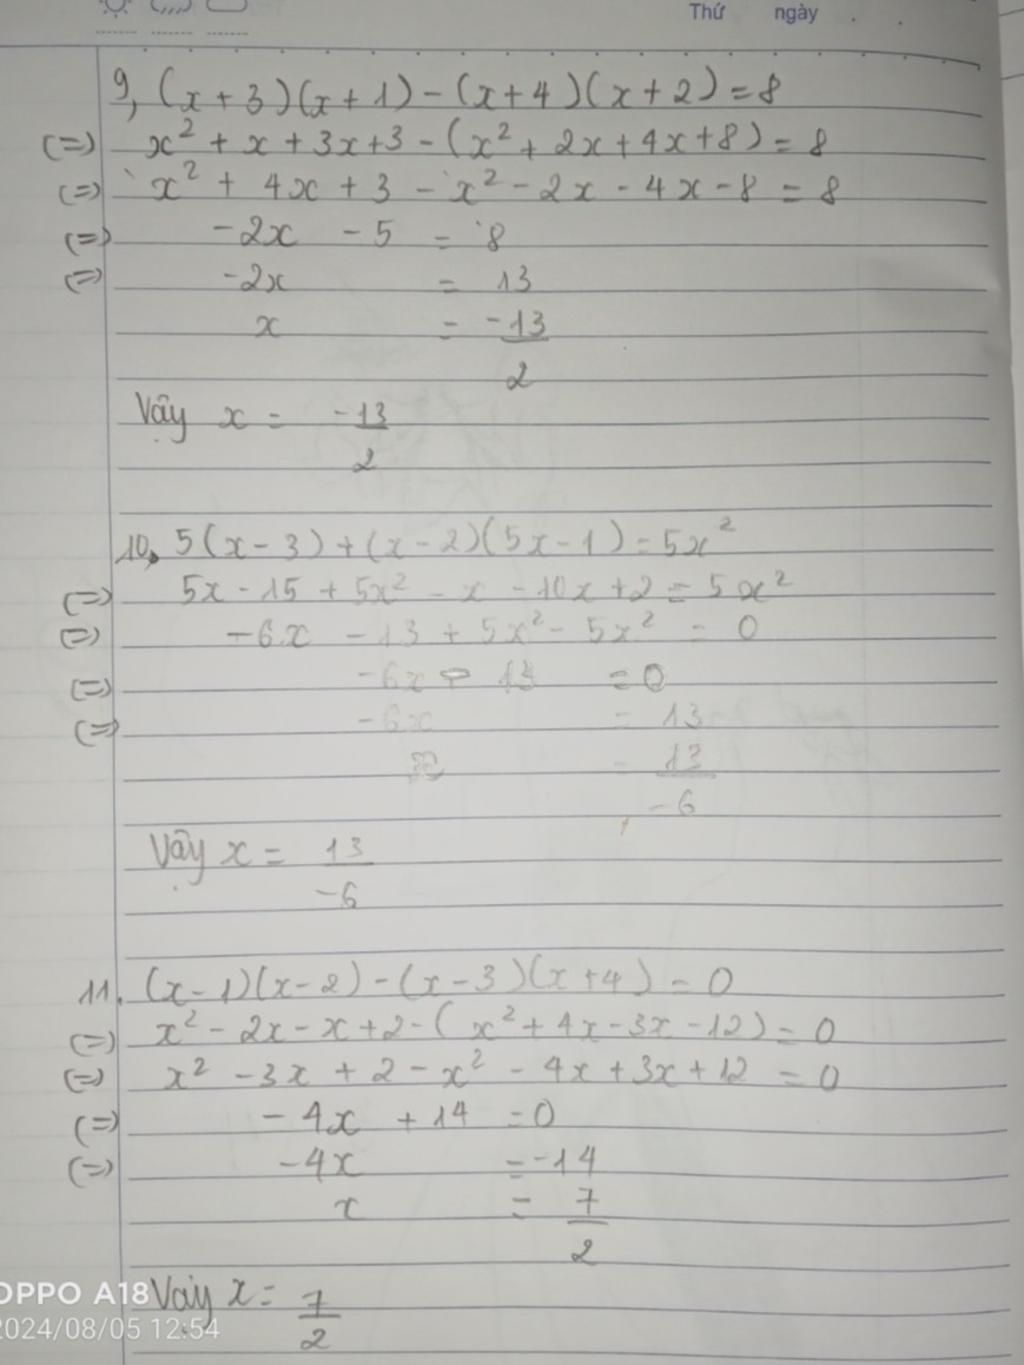 Thứ ngày
9, (x + 3)(x + 1) - (x + 4)(x + 2) = 8
(=) x² + x + 3x + 3 - (x² + 2x + 4x + 8) = 8
(=) x² + 4x + 3 - x² - 2x - 4x - 8 = 8
(=) -2x - 5 = 8
(=) -2x = 13
x = -13/2
Vậy x = -13/2
10, 5(x - 3) + (x - 2)(5x - 1) = 5x²
(=) 5x - 15 + 5x² - x - 10x + 2 = 5x²
(=) -6x - 13 + 5x² - 5x² = 0
(=) -6x - 13 = 0
(=) -6x = 13
x = 13/-6
Vậy x = 13/-6
11. (x - 1)(x - 2) - (x - 3)(x + 4) = 0
(=) x² - 2x - x + 2 - (x² + 4x - 3x - 12) = 0
(=) x² - 3x + 2 - x² - 4x + 3x + 12 = 0
(=) - 4x + 14 = 0
(=) -4x = -14
x = 7/2
Vậy x = 7/2
OPPO A18
2024/08/05 12:54